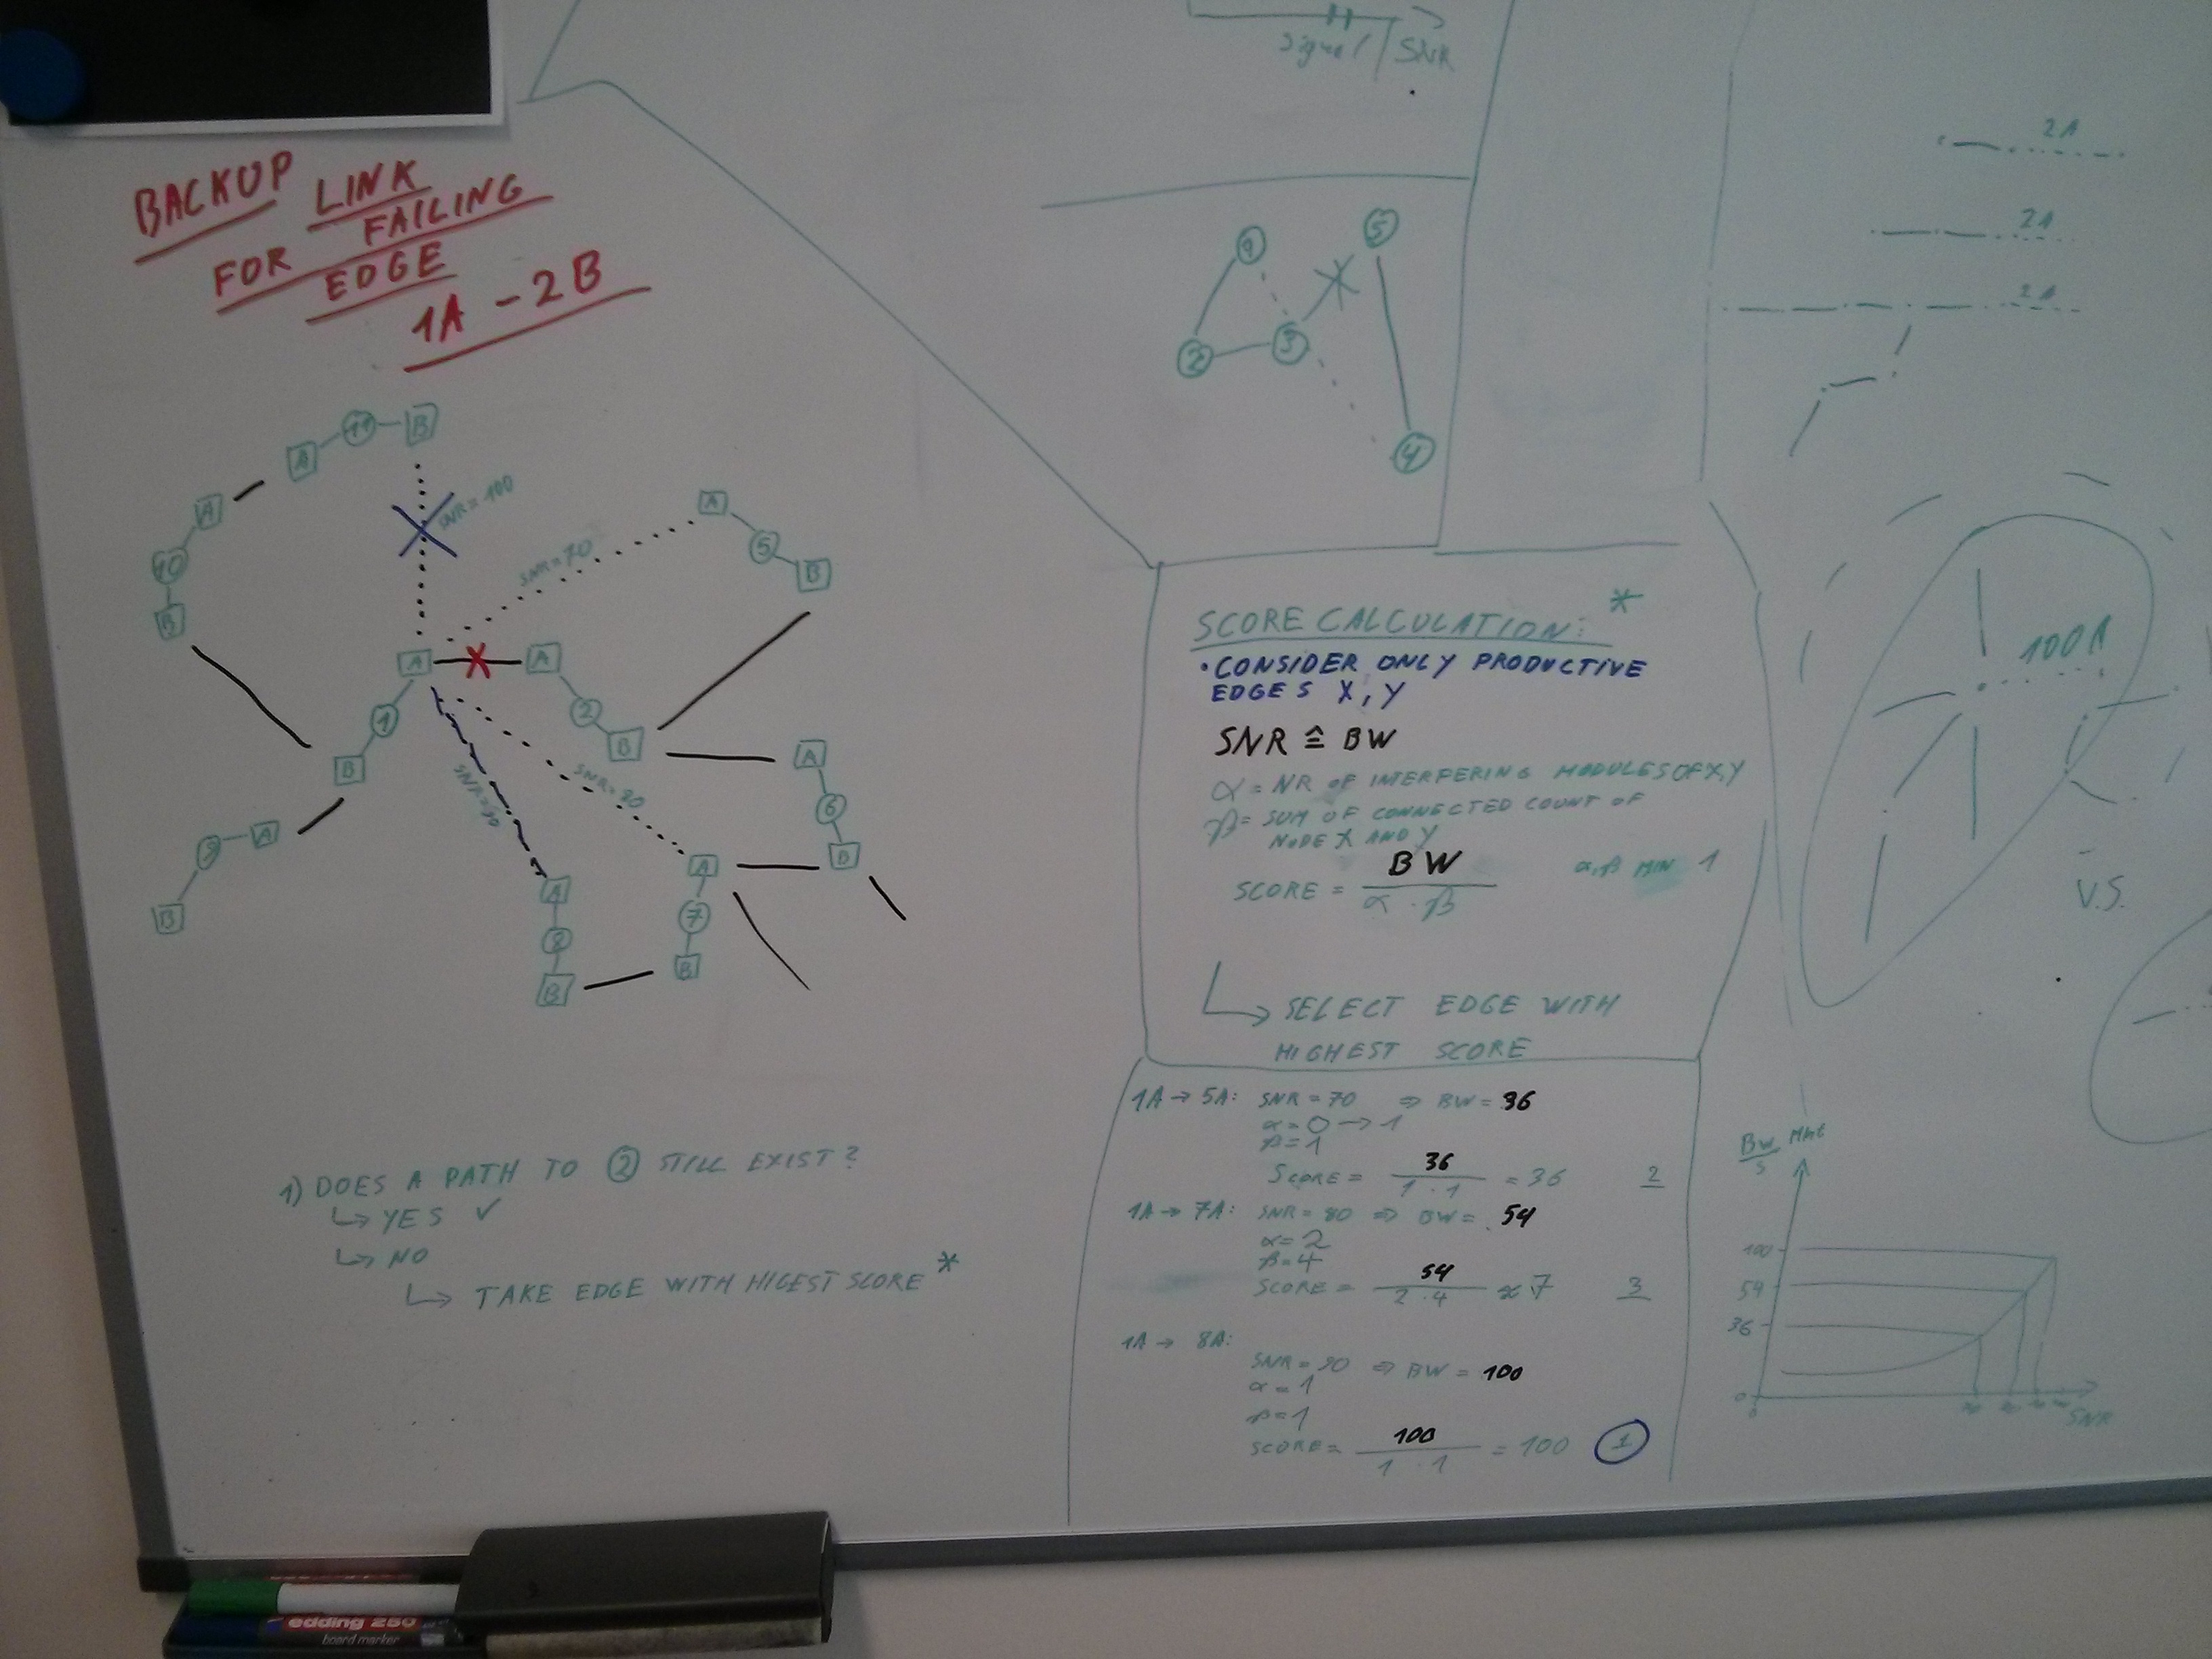 BACKUP
LINK
FOR FAILING
EDGE
1A - 2B
A 11 B
A
10
B
SNR = 100
SNR = 70
A
5
B
A
A
1
B
2
B
SNR = 80
A
6
B
9 A
B
A
8
B
A
7
B
1) DOES A PATH TO 2 STILL EXIST?
↳ YES ✓
↳ NO
↳ TAKE EDGE WITH HIGEST SCORE *
Signal / SNR
5
2 3
4
SCORE CALCULATION: *
• CONSIDER ONLY PRODUCTIVE
EDGES X, Y
SNR ≙ BW
α = NR OF INTERFERING MODULES OF X, Y
β = SUM OF CONNECTED COUNT OF
NODE X AND Y
SCORE = BW / α · β
α, β MIN 1
↳ SELECT EDGE WITH
HIGHEST SCORE
1A → 5A: SNR = 70 ⇒ BW = 36
α = 0 → 1
β = 1
SCORE = 36 / 1 · 1 = 36 2
1A → 7A: SNR = 80 ⇒ BW = 54
α = 2
β = 4
SCORE = 54 / 2 · 4 ≈ 7 3
1A → 8A:
SNR = 90 ⇒ BW = 100
α = 1
β = 1
SCORE = 100 / 1 · 1 = 100 1
2A
2A
2A
100A
V.S.
BW
100
54
36
0
SNR
edding 250
board marker